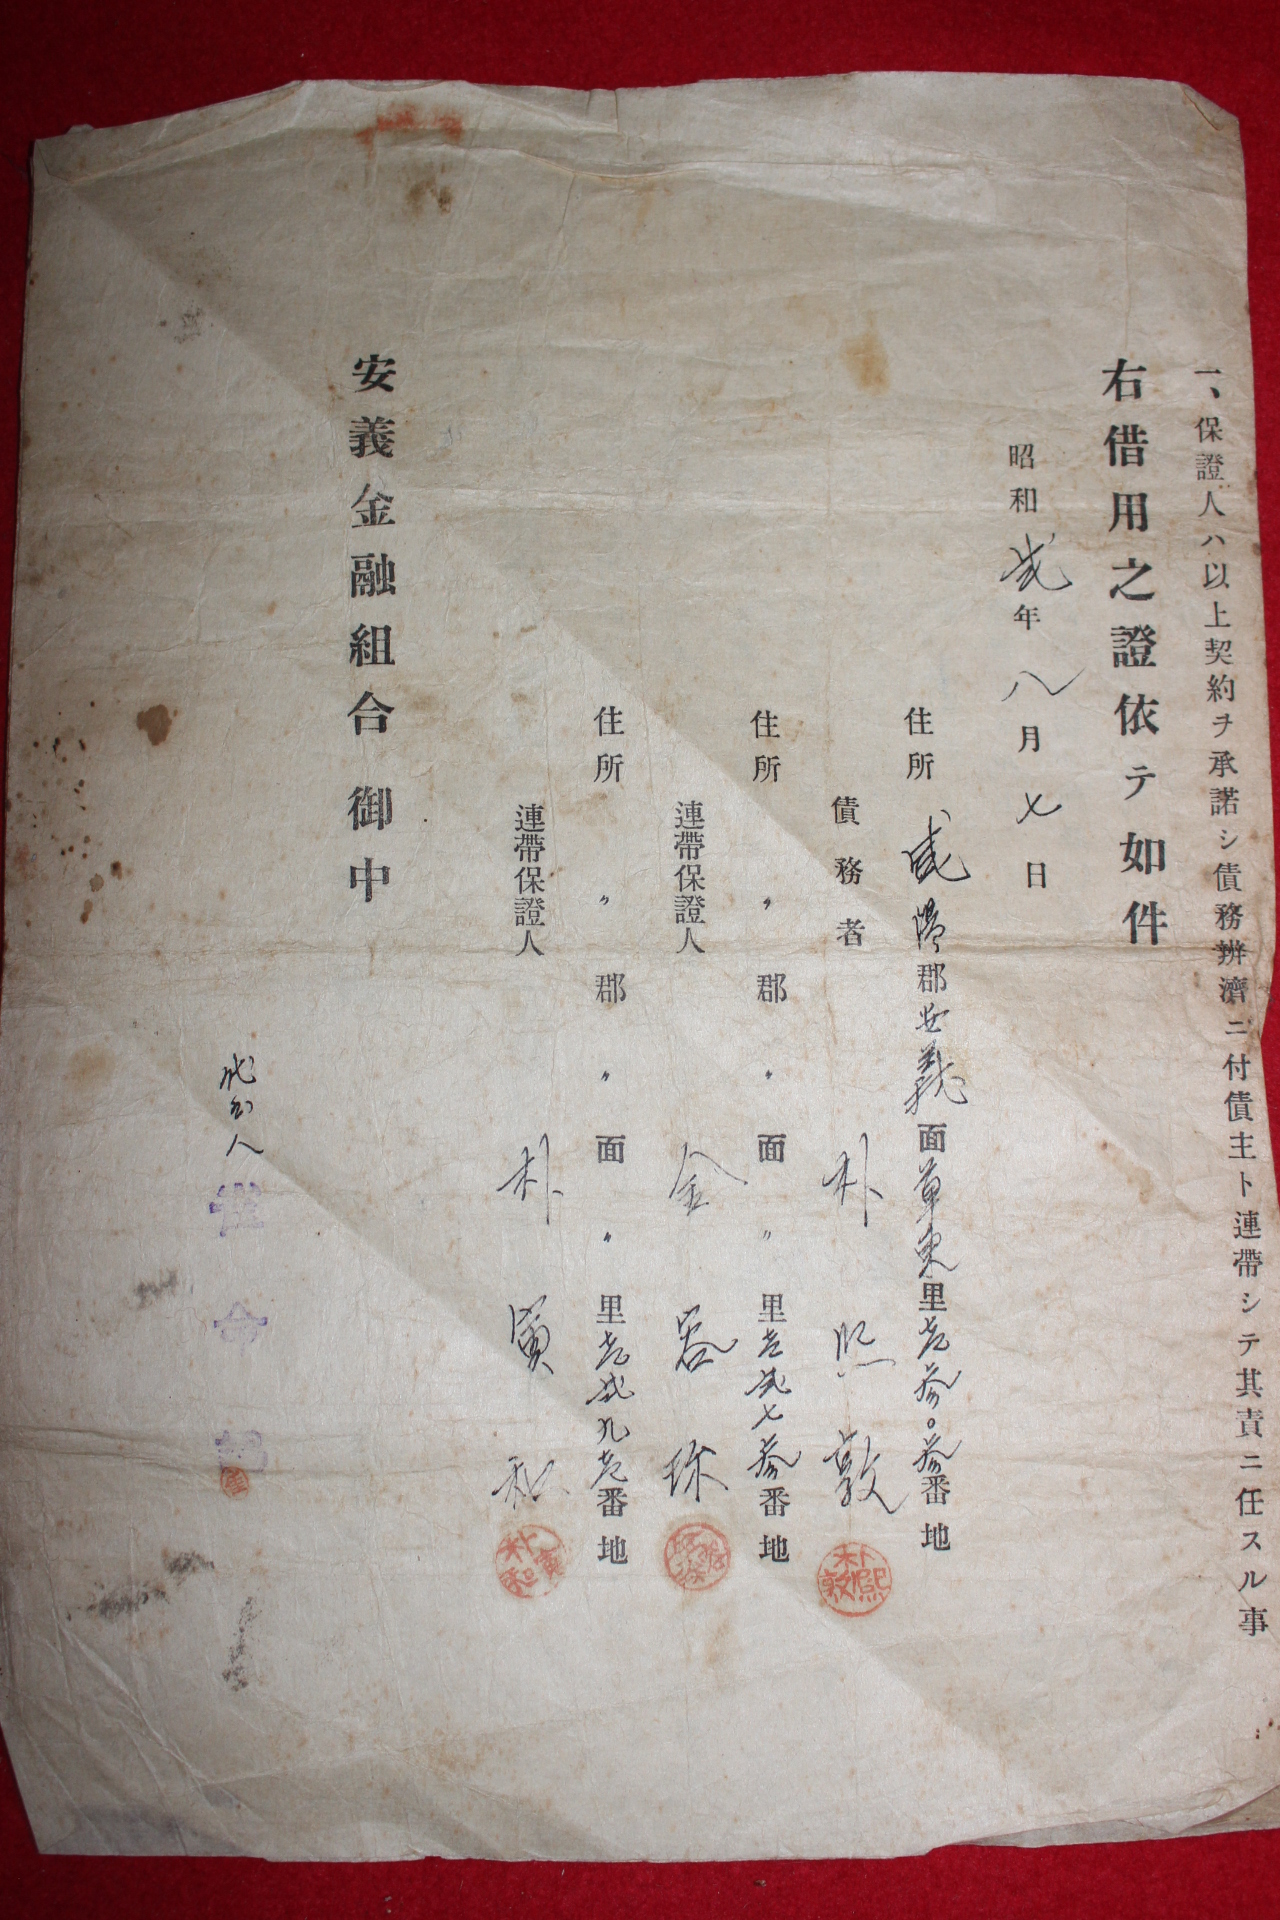 一、保證人ハ以上契約ヲ承諾シ債務辨濟ニ付債主ト連帶シテ其責ニ任スル事
右借用之證依テ如件
昭和貳年八月七日
住所 咸陽郡安義面草東里壱参〇参番地
債務者 朴熙敦
朴熙敦
住所 〃郡〃面〃里壱貳七参番地
連帶保證人 金容珎
住所 〃郡〃面〃里壱貳九壱番地
連帶保證人 朴寅和
朴寅和
安義金融組合 御中